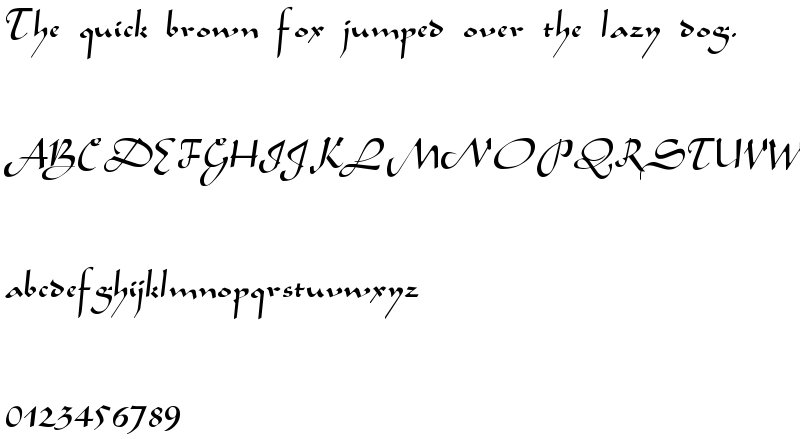 The quick brown fox jumped over the lazy dog.
ABCDEFGHIJKLMNOPQRSTUVW
abcdefghijklmnopqrstuvwxyz
0123456789